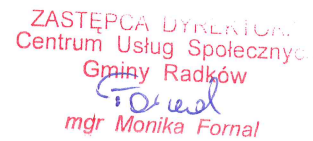 ZASTĘPCA DYREKTORA
Centrum Usług Społecznych
Gminy Radków
Fornal
mgr Monika Fornal